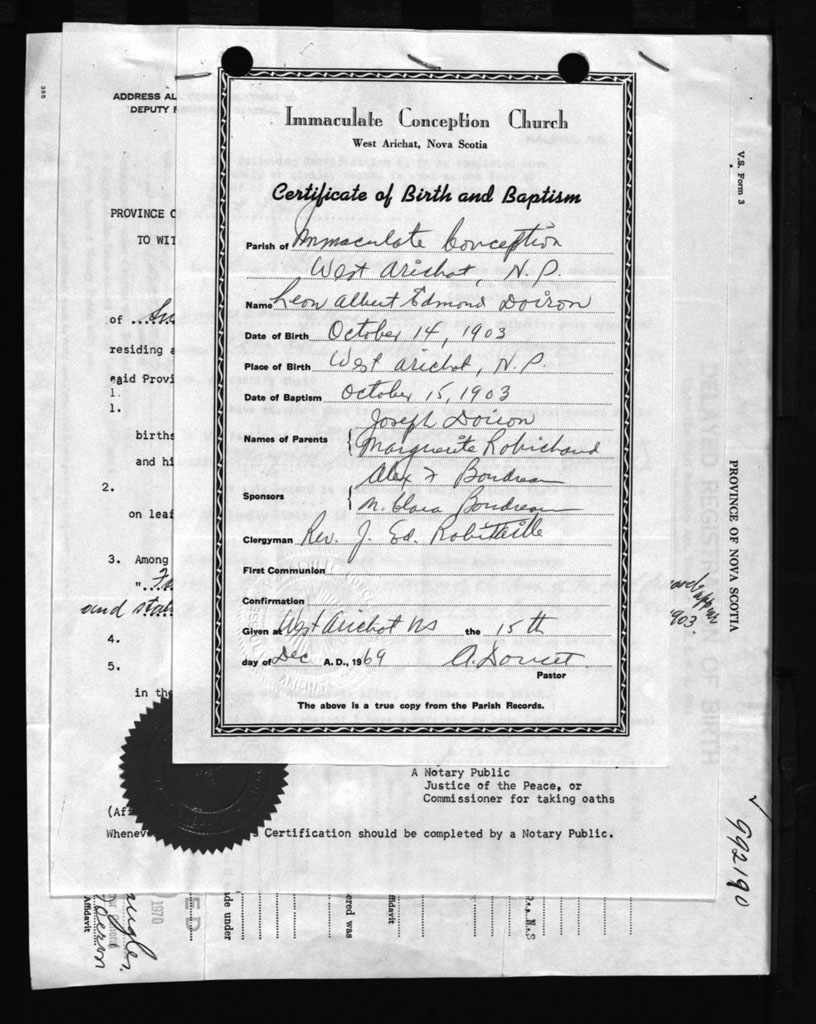 Immaculate Conception Church
West Arichat, Nova Scotia
Certificate of Birth and Baptism
Parish of Immaculate Conception
West Arichat, N.P.
Name Leon Albert Edmond Doiron
Date of Birth October 14, 1903
Place of Birth West Arichat, N.P.
Date of Baptism October 15, 1903
Names of Parents { Joseph Doiron
Marguerite Robichaud
Sponsors { Alex F Boudreau
M. Clara Boudreau
Clergyman Rev. J. Ed. Robitaille
First Communion
Confirmation
Given at West Arichat NS the 15th
day of Dec A.D., 1969 A. Doucet
Pastor
The above is a true copy from the Parish Records.
ADDRESS AL
DEPUTY
PROVINCE O
TO WIT
of
residing a
said Provi
1.
1.
births
and hi
2.
on leaf
3. Among
and stat
4.
5.
in the
A Notary Public
Justice of the Peace, or
Commissioner for taking oaths
(Aff
Whenev s Certification should be completed by a Notary Public.
V.S. Form 3
PROVINCE OF NOVA SCOTIA
DELAYED REGISTRATION OF BIRTH
1903.
992190
1970
Affidavit
ED
ade under
ered was
affidavit
N.S